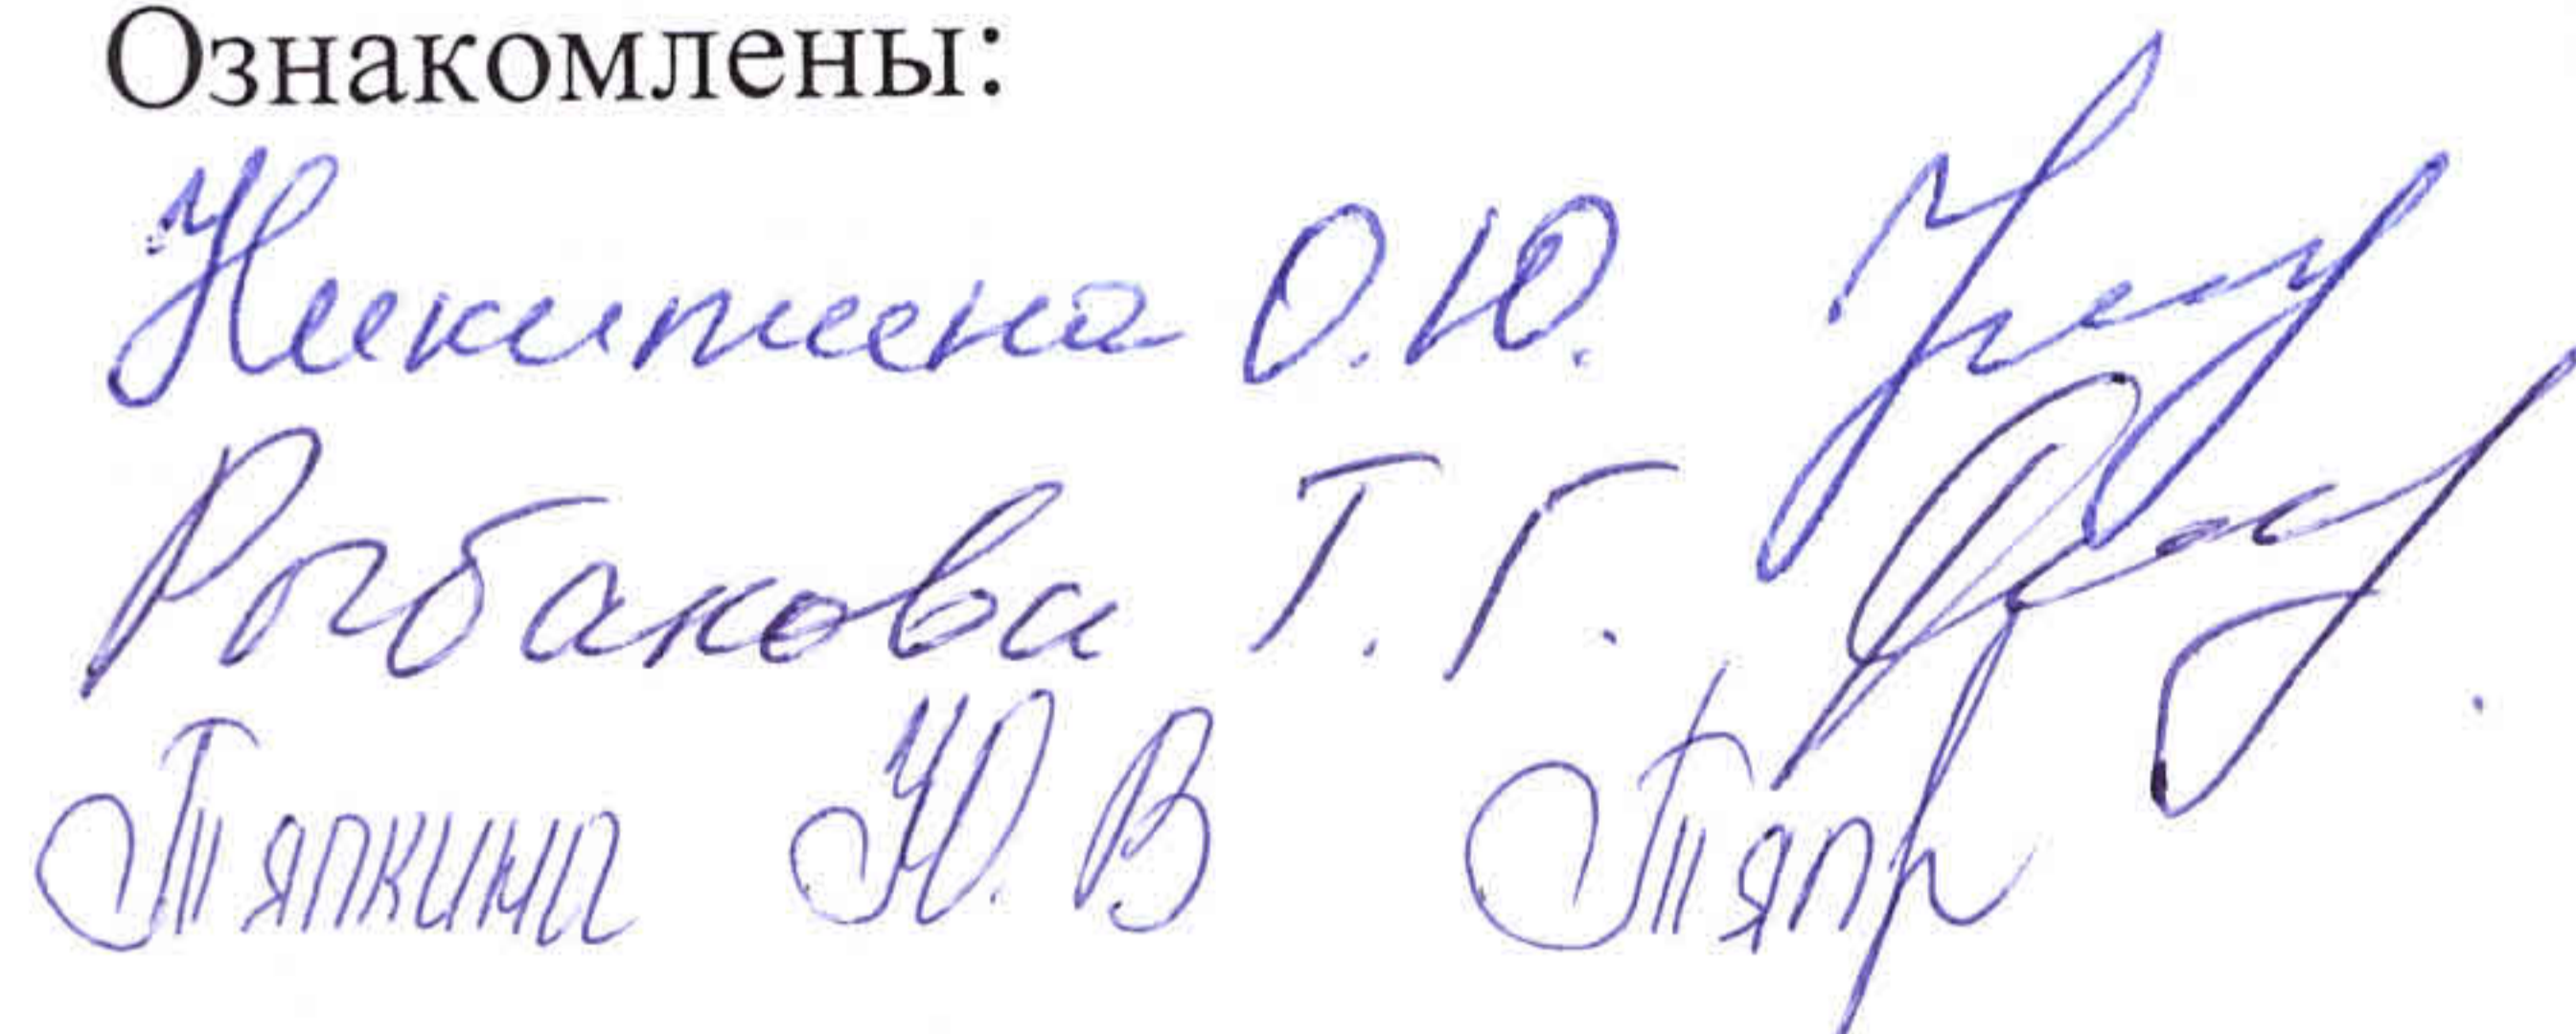 Ознакомлены:
Никитина О.Ю.
Рыбакова Т. Г.
Тяпкина Ю. В